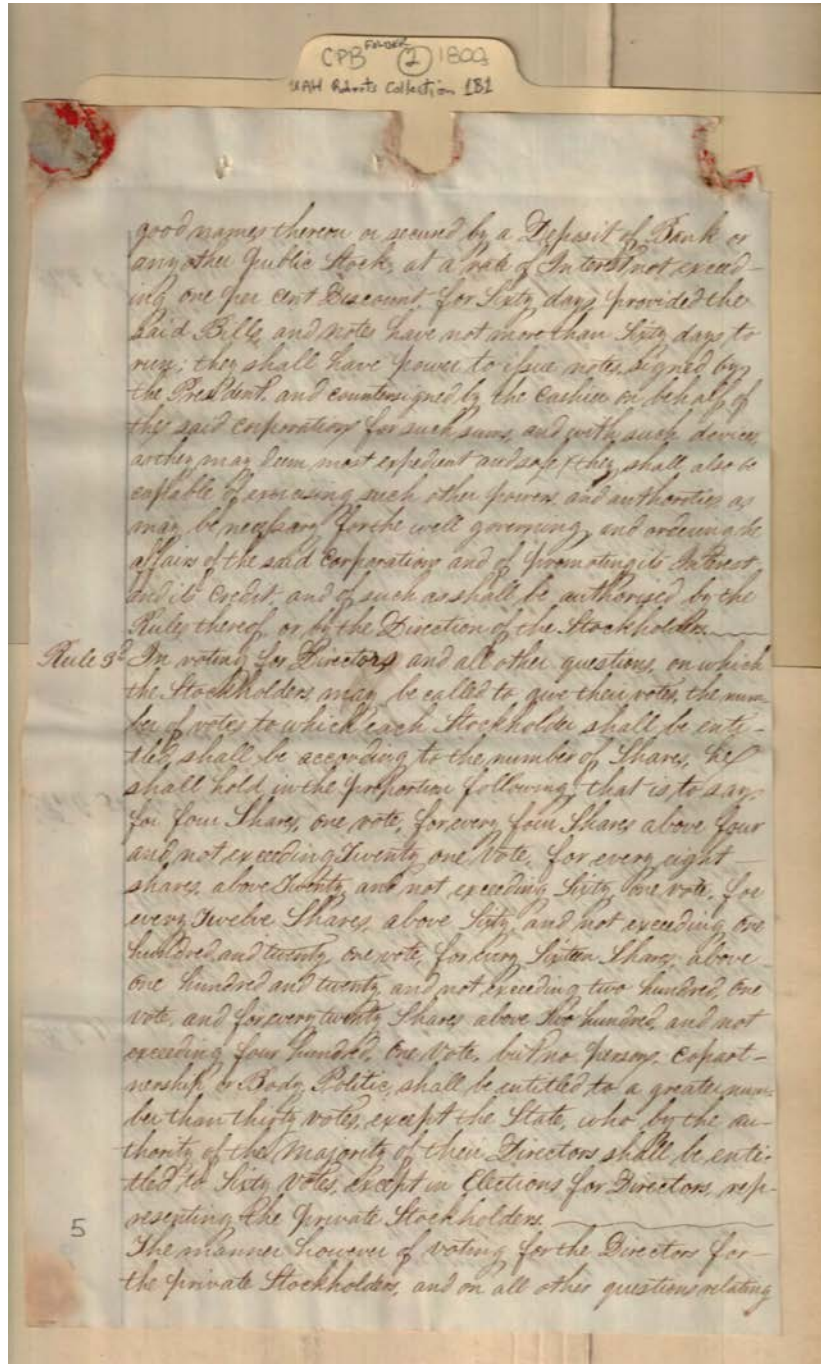 CPB FOLDER 2 1809
UAH Roberts Collection 1B1
good names thereon or secured by a Deposit of Bank or
any other public Stock, at a rate of Interest not exceed-
ing one per cent Discount for Sixty days provided the
said Bills and notes have not more than Sixty days to
run; they shall have power to issue notes signed by
the President, and countersigned by the Cashier on behalf of
the said corporation for such sums, and with such devices
as they may deem most expedient and safe & they shall also be
capable of exercising such other powers and authorities as
may be necessary for the well governing and ordering the
affairs of the said Corporation and of promoting its Interest
and its Credit, and of such as shall be authorised by the
Rules thereof, or by the Direction of the Stockholders.
Rule 3d In voting for Directors and all other questions, on which
the Stockholders may be called to give their votes, the num-
ber of votes to which each Stockholder shall be enti-
tled, shall be according to the number of Shares, he
shall hold in the proportion following, that is, to say,
for four Shares, one vote, for every four Shares above four
and not exceeding Twenty one Vote, for every eight
shares, above Twenty, and not exceeding Sixty, one vote, for
every Twelve Shares, above Sixty, and not exceeding, one
hundred and twenty, one vote, for every Sixteen Shares above
one hundred and twenty, and not exceeding two hundred, one
vote, and for every twenty Shares above Two hundred, and not
exceeding four hundred, One Vote, but no person, copart-
nership or Body Politic, shall be entitled to a greater num-
ber than thirty votes, except the State, who by the au-
thority of the Majority of their Directors shall be enti-
tled to Sixty Votes, except in Elections for Directors, rep-
resenting the private Stockholders.
5
The manner however of voting for the Directors for
the private Stockholders, and on all other questions relating